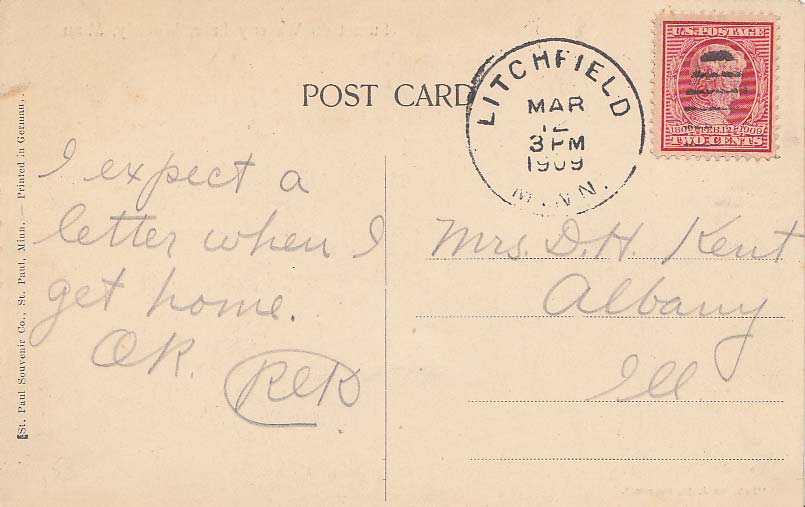 POST CARD
LITCHFIELD
MAR
12
3 PM
1909
MINN.
U.S. POSTAGE
1809 FEB. 12 1909
TWO CENTS
I expect a
letter when I
get home.
OK.
Mrs. D. H. Kent
Albany
Ill
St. Paul Souvenir Co., St. Paul, Minn. — Printed in Germany.